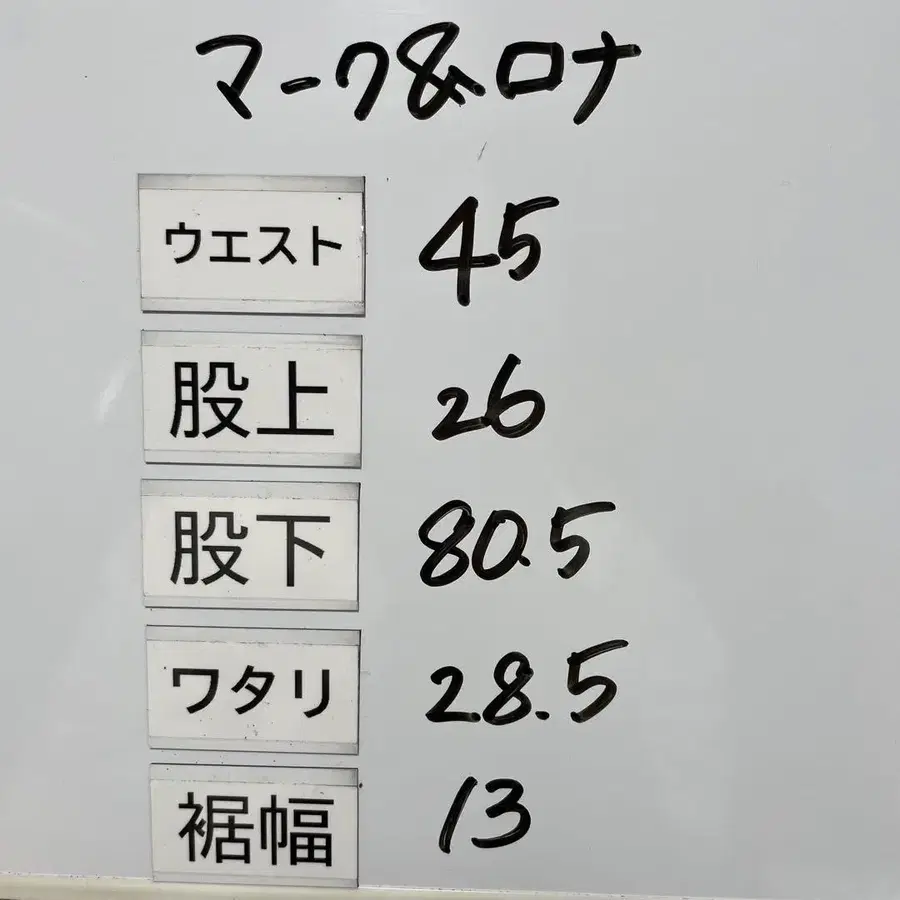 マーク&ロナ
ウエスト 45
股上 26
股下 80.5
ワタリ 28.5
裾幅 13